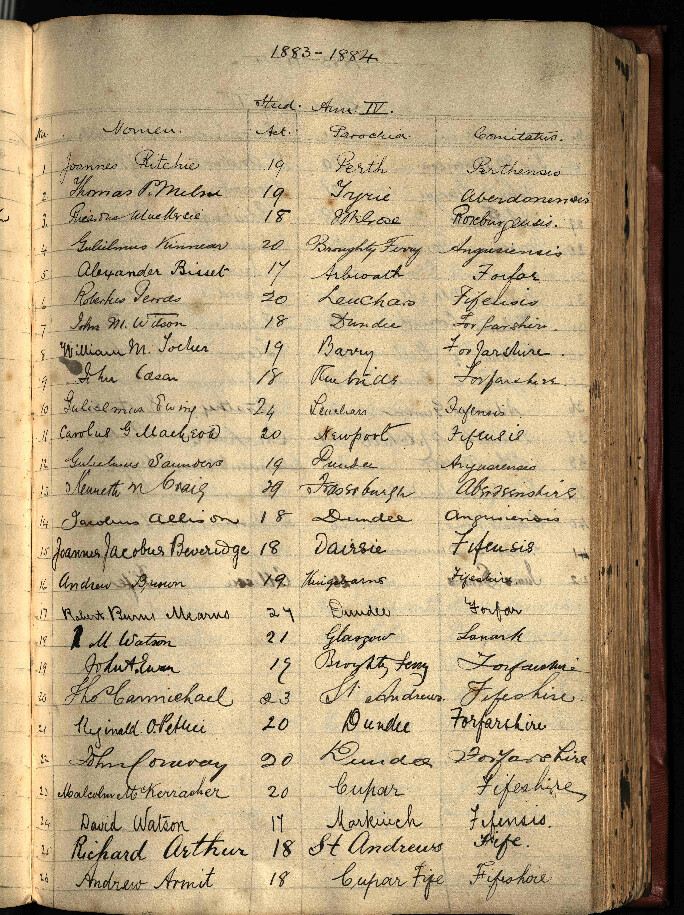 1883-1884
Stud. Ann. IV.
No. Nomen. Aet. Parochia. Comitatus.
1 Joannes Ritchie 19 Perth Perthensis
2 Thomas P. Milne 19 Tyrie Aberdonensis
3. 18 Melrose Roxburgensis.
4 Gulielmus Kinnear 20 Broughty Ferry Angusiensis
5 Alexander Bisset 17 Arbroath Forfar
6 Robertus 20 Leuchars Fifensis
7 John M. Wilson 18 Dundee Forfarshire.
8 William M. Tocher 19 Barry Forfarshire
9 John 18 Forfarshire.
10 Gulielmus Ewing 24 Leuchars Fifensis
11 Carolus G Macleod 20 Newport Fifensis
12 Gulielmus Saunders 19 Dundee Angusiensis
13 Kenneth M Craig 29 Fraserburgh Aberdeenshire
14 Jacobus Allison 18 Dundee Angusiensis
15 Joannes Jacobus Beveridge 18 Dairsie Fifensis
16 Andrew Brown 19 Kingsbarns Fifeshire
17 Robert Burns Mearns 24 Dundee Forfar
18 M Watson 21 Glasgow Lanark
19 John A. Ewan 19 Broghty Ferry Forfarshire
20 Thos Carmichael 23 St Andrews. Fifeshire.
21 Reginald O. 20 Dundee Forfarshire
22 John Conway 20 Dundee Forfarshire
23 Malcolm McKerracher 20 Cupar Fifeshire
24 David Watson 17 Markinch Fifensis
25 Richard Arthur 18 St Andrews Fife.
26 Andrew Armit 18 Cupar Fife Fifeshire